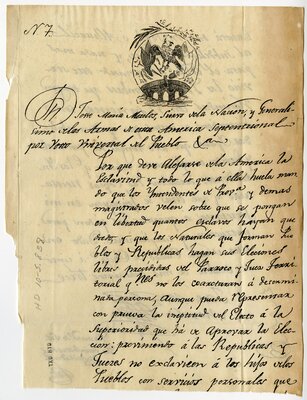 N 7.
D. José María Morelos, Siervo dela Nacion, y Generali-
simo delas Armas de esta America Septentrional
por Voto Universal del Pueblo &a
Por que deve alejarse dela America la
Esclavitud y todo lo que á ella huela man-
do que los Yntendentes de Prova y demas
magistrados velen sobre que se pongan
en libertad quantos esclavos hayan que-
dado, y que los Naturales que forman Pue-
blos y Republicas hagan sus elecciones
libres presididas del Parroco y Juez Terri-
torial q nos los coartaran á deter-
minada persona, aunque pueda representar
con prueva la ineptitud del electo á la
Superioridad que há de aprovar la elec-
cion: previniendo á las Republicas y
Jueces no esclavicen á los hijos delos
Pueblos con servicios personales que